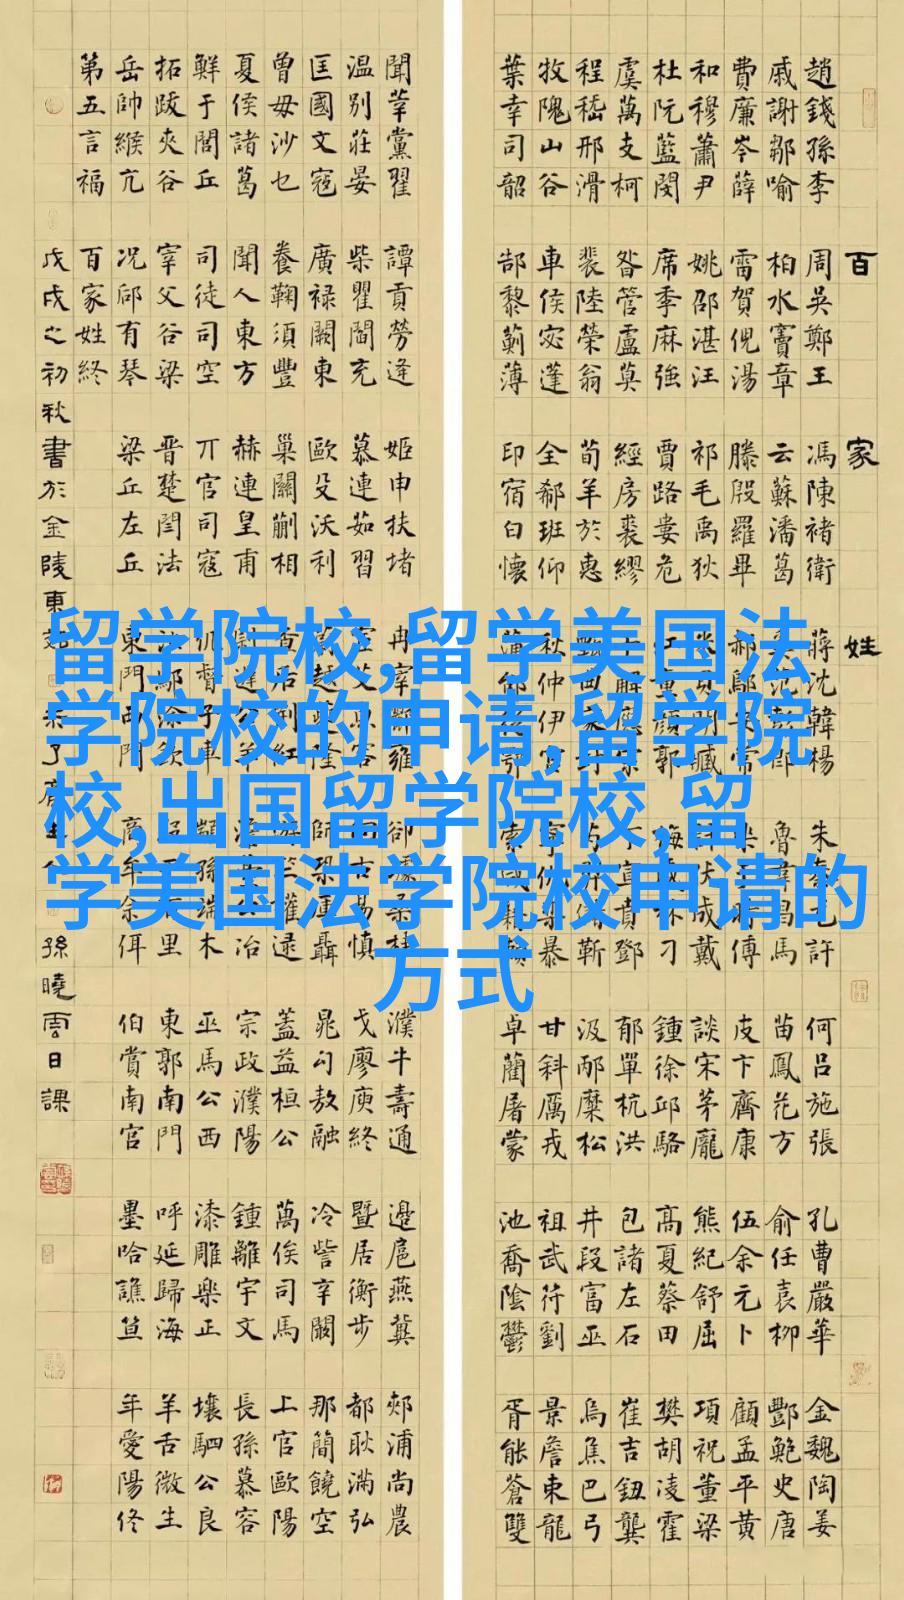 百家姓
趙錢孫李 周吳鄭王 馮陳褚衛 蔣沈韓楊 朱許 何呂施張 孔曹嚴華 金魏陶姜
戚謝鄒喻 柏水竇章 云蘇潘葛 范彭郎 魯韋昌馬 苗鳳花方 俞任袁柳 酆鮑史唐
費廉岑薛 雷賀倪湯 滕殷羅畢 郝鄔常 時傅 皮卞齊康 伍余元卜 顧孟平黃
和穆蕭尹 姚邵湛汪 祁毛禹狄 明臧 成戴 談宋茅龐 熊紀舒屈 項祝董梁
杜阮藍閔 席季麻強 賈路婁危 童顏郭 梅林刁 鍾徐邱駱 高夏蔡田 樊胡凌霍
虞萬支柯 昝管盧莫 經房裘繆 解應宗 宣賁鄧 郁單杭洪 包諸左石 崔吉鈕龔
程嵇邢滑 裴陸榮翁 荀羊於惠 曲家封 靳 汲邴糜松 井段富巫 烏焦巴弓
牧隗山谷 車侯宓蓬 全郗班仰 秋仲伊宮 暴 甘斜厲戎 祖武符劉 景詹束龍
葉幸司韶 郜黎薊薄 印宿白懷 蒲鄂 索咸籍賴 卓藺屠蒙 池喬陰鬱 胥能蒼雙
聞莘黨翟 譚貢勞逄 姬申扶堵 冉宰酈雍 郤璩桑桂 濮牛壽通 邊扈燕冀 郟浦尚農
温別莊晏 柴瞿閻充 慕連茹習 艾容 古易慎 戈廖庾終 暨居衡步 都耿滿弘
匡國文寇 廣祿闕東 歐殳沃利 越隆 師鞏聶 晁勾敖融 冷訾辛闞 那簡饒空
曾毋沙乜 養鞠須豐 巢關蒯相 查后荊紅 竺權逯 蓋益桓公 萬俟司馬 上官歐陽
夏侯諸葛 聞人東方 赫連皇甫 公羊 冶 宗政濮陽 鍾離宇文 長孫慕容
鮮于閭丘 司徒司空 丌官司寇 仉督子車 顓孫端木 巫馬公西 漆雕樂正 壤駟公良
拓跋夾谷 宰父谷梁 晉楚閆法 汝鄢涂欽 里 東郭南門 呼延歸海 羊舌微生
岳帥緱亢 况郈有琴 梁丘左丘 東門西門 商牟佘佴 伯賞南宮 墨哈譙笪 年愛陽佟
第五言福 百家姓終
戊戌之初秋書於金陵東 孫曉雲日課
留学院校,留学美国法
学院校的申请,留学院
校,出国留学院校,留
学美国法学院校申请的
方式